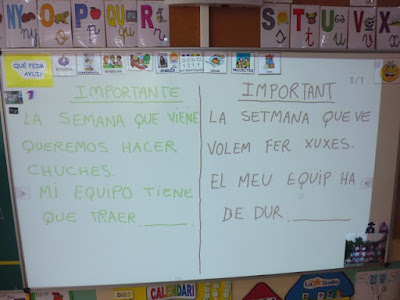 Ñ O P Q R
S T U V X
QUÈ FEIM
AVUI?
IMPORTANTE
LA SEMANA QUE VIENE
QUEREMOS HACER
CHUCHES.
MI EQUIPO TIENE
QUE TRAER ______.
IMPORTANT
LA SETMANA QUE VE
VOLEM FER XUXES.
EL MEU EQUIP HA
DE DUR ________.
CALENDARI
La Salle